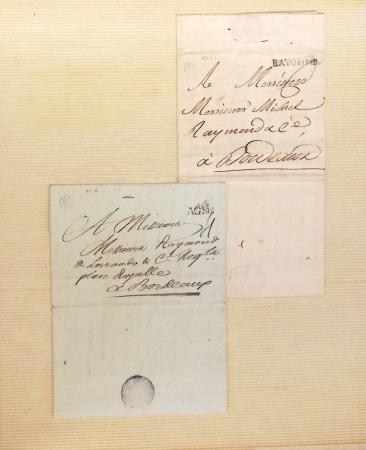 BAYONNE
A Messieurs
Messieurs Michel
Raymond & Cie
à Bordeaux
AGN
A Messieurs
Messieurs Raymond
& Cie
place Royalle
à Bordeaux